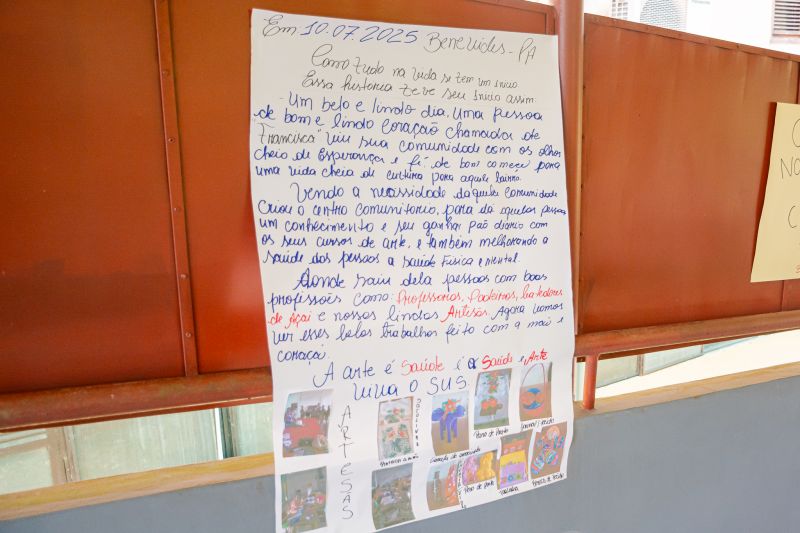 Em 10.07.2025 Benevides-PA
Como tudo na vida se tem um inicio
Essa historia teve seu inicio assim.
Um belo e lindo dia, uma pessoa
de bom e lindo coração chamada de
"Francisca" viu sua comunidade com os olhos
cheio de esperança e fé de bom começo para
uma vida cheia de cultura para aquele bairro.
Vendo a necessidade daquela comunidade
Criou o centro comunitario, para da aquelas pessoas
um conhecimento e seu ganhar pão diario com
os seus cursos de arte, e também melhorando a
saúde das pessoas a saúde Fisica e mental.
Aonde saiu dela pessoas com boas
profissões como: Professoras, Padeiros, batedores
de Açai e nossas lindas Artesãs. Agora vamos
ver esses belos trabalhos feito com a mão e
coração.
A arte é Saúde e a Saúde e Arte
viva o SUS.
ARTESAS
Pano de Prato
Pano de prato